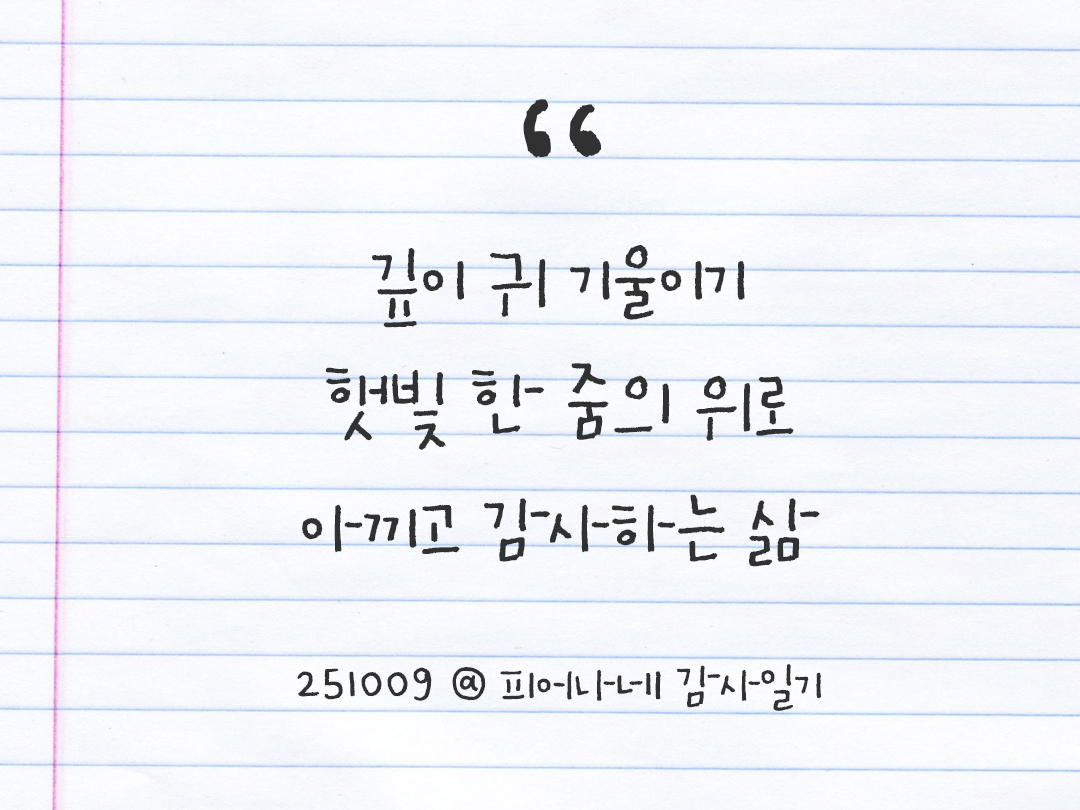 “
깊이 귀 기울이기
햇빛 한 줌의 위로
아끼고 감사하는 삶
251009 @ 피어나네 감사일기